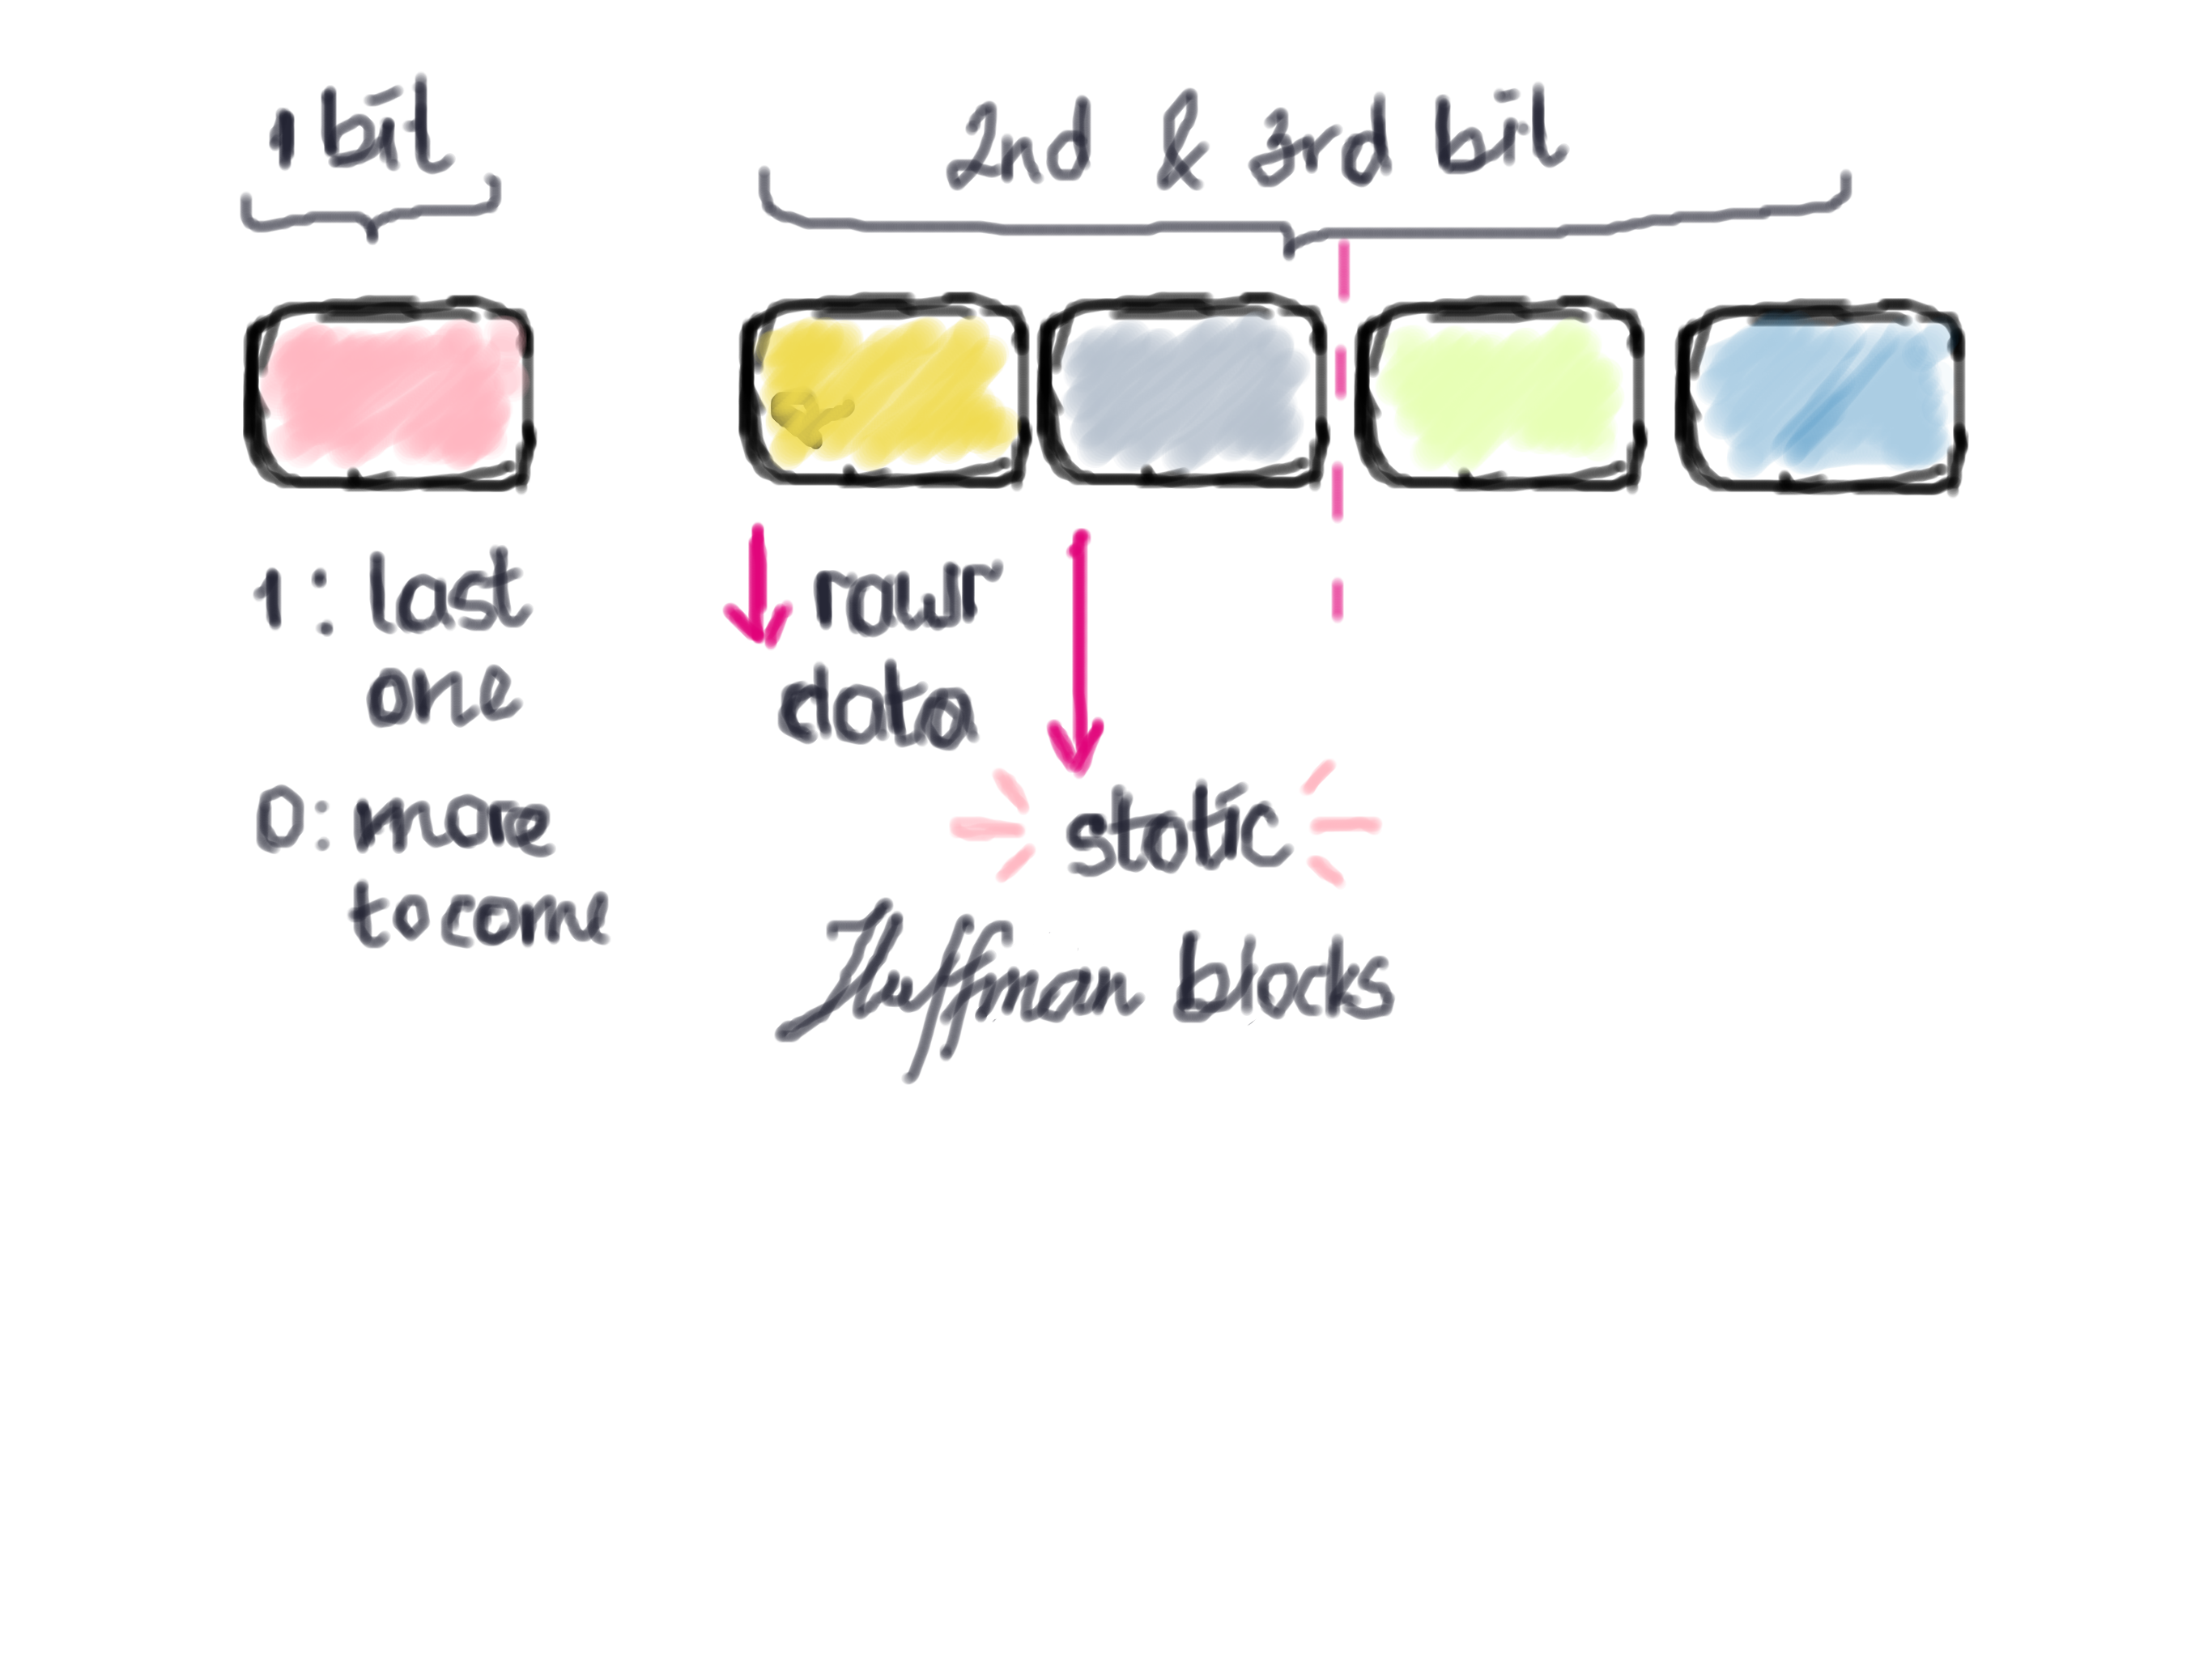 1 bit
2nd & 3rd bit
1: last
one
0: more
to come
raw
data
static
Huffman blocks